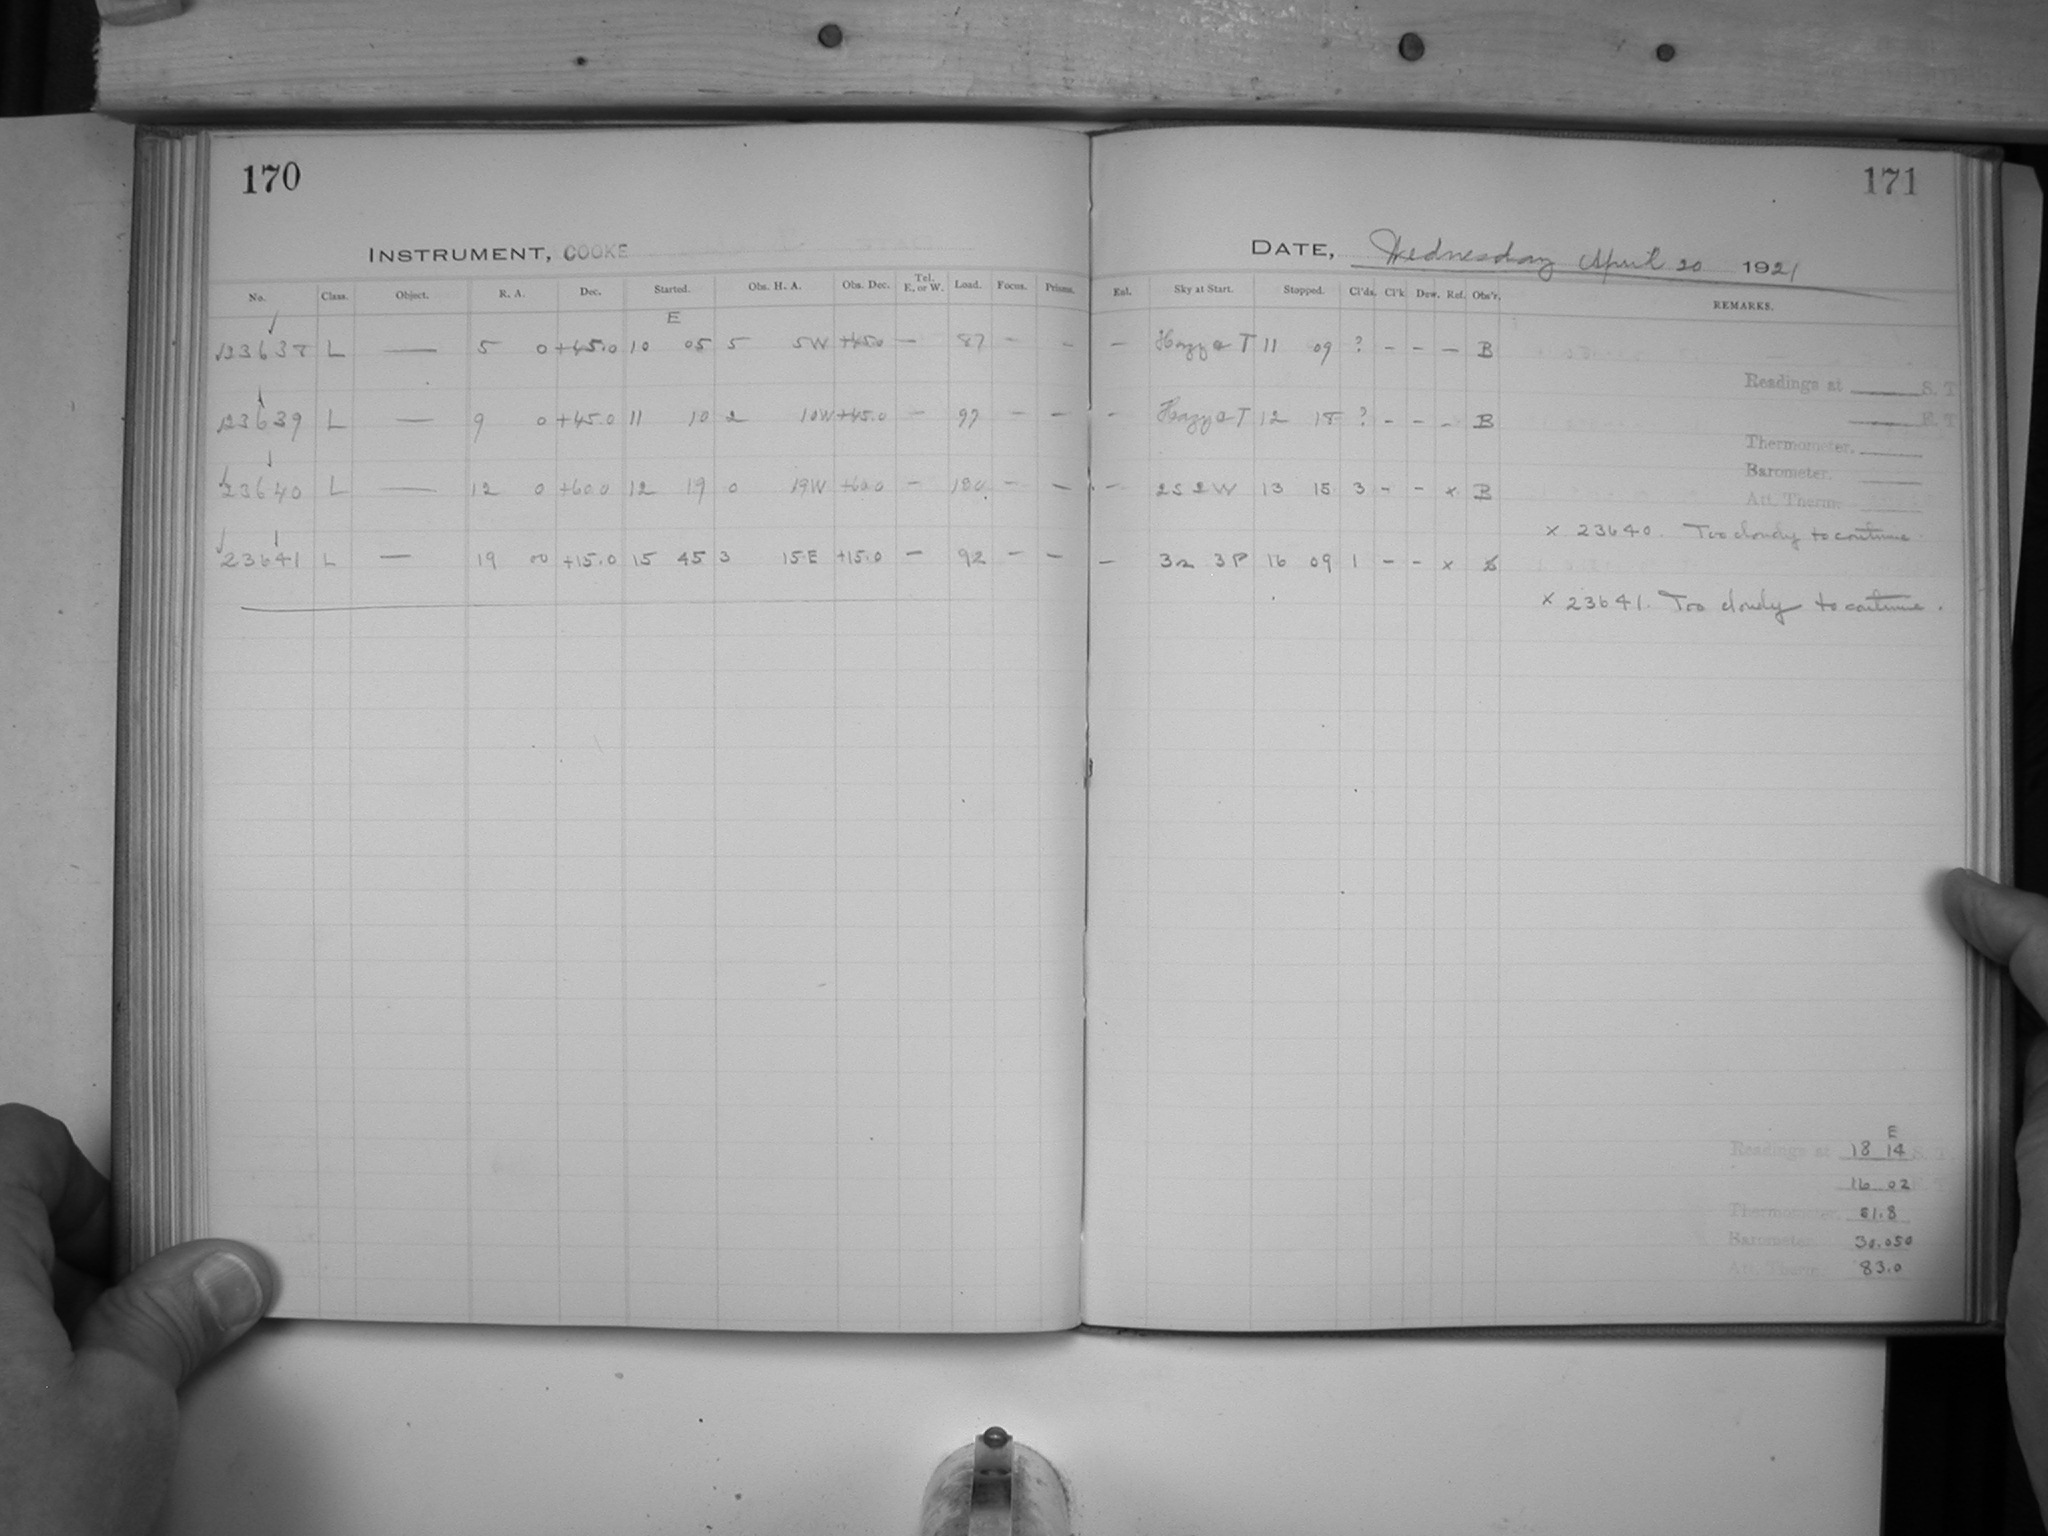 170
INSTRUMENT, COOKE
No. Class. Object. R. A. Dec. Started. Obs. H. A. Obs. Dec. Tel. E. or W. Load. Focus. Prisms.
E
23638 L — 5 0 +45.0 10 05 5 5W +45.0 — 87 — —
23639 L — 9 0 +45.0 11 10 2 10W +45.0 — 97 — —
23640 L — 12 0 +60.0 12 19 0 19W +60.0 — 180 — —
23641 L — 19 00 +15.0 15 45 3 15E +15.0 — 92 — —
171
DATE, Wednesday April 20 1921
Enl. Sky at Start. Stopped. Cl'ds. Cl'k Dew. Ref. Obs'r. REMARKS.
— Hazy T 11 09 ? — — — B
Readings at S. T
— Hazy T 12 18 ? — — — B
E. T
Thermometer.
Barometer.
— 2S 2W 13 15 3 — — x B
Att. Therm.
x 23640. Too cloudy to continue.
— 3P 16 09 1 — — x
x 23641. Too cloudy to continue.
E
Readings at 18 14 S. T.
16 02
Thermometer. 81.8
Barometer 30.050
Att. Therm. 83.0